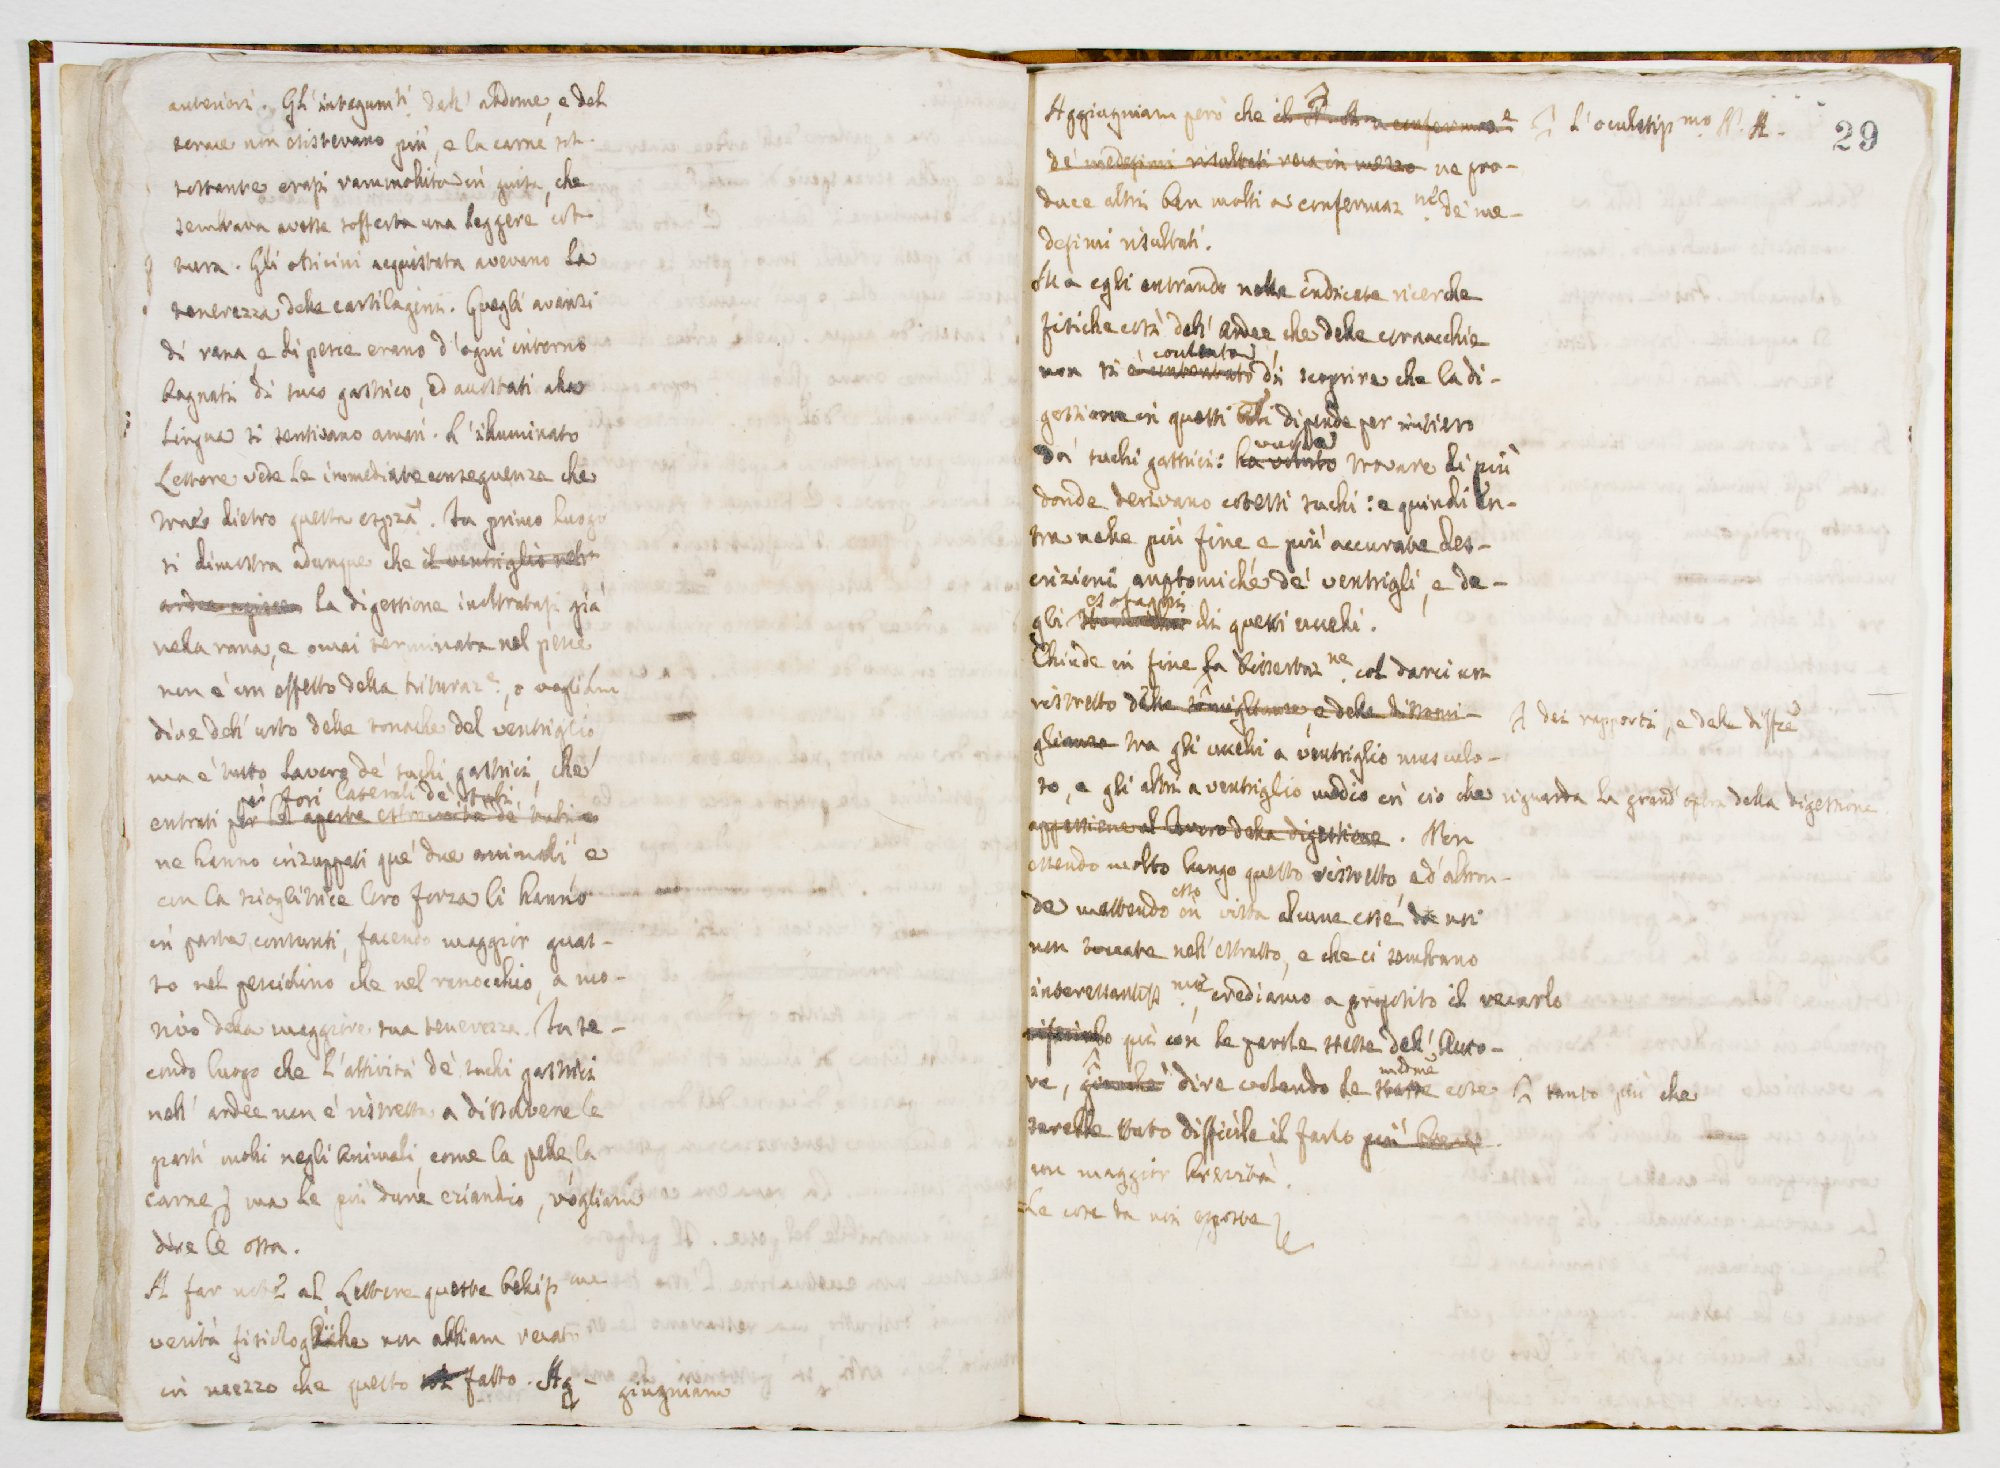 anteriori. Gl'integum.ti dell'abdome, e del
verme non esistevano più, e la carne sot-
tostante erasi rammollita in guisa, che
sembrava avesse sofferta una leggere cot-
tura. Gli ossicini acquistata avevano la
tenerezza delle cartilagini. Quegli avanzi
di rana, e di pesce erano d'ogni intorno
bagnati di suco gastrico, ed accostati alla
lingua si sentivano amari. L'illuminato
Lettore vede le immediate conseguenze che
trae dietro questa esprza. In primo luogo
si dimostra adunque che il ventriglio nelle
ardee agisce la digestione inoltratasi già
nella rana, e omai terminata nel pesce
non è un effetto della trituraz.e, o vogliam
dire dell'urto delle tonache del ventriglio
ma è tutto lavoro de' suchi gastrici, che
pei fori laterali de' tubi
entrati per le aperte estremità de' tubi
ne hanno inzuppati que' due animali e
con la scioglitrice loro forza li hanno
in parte consunti, facendo maggior guas-
to nel pesciolino che nel ranocchio, a mo-
tivo della maggiore sua tenerezza. In se-
condo luogo che l'attività de' suchi gastrici
nell'ardee non è ristretta a dissolvere le
parti molli negli Animali, come la pelle, la
carne, ma le più dure eziandio, vogliam
dire le ossa.
A far noto al Lettore queste bellissi.me
verità fisiologiche non abbiam recato
in mezzo che questo sol fatto. Ag-
giugniam
29
Aggiugniam però che il N. A. a conferma.e
L'oculatiss.mo N. A.
de' medesimi risultati reca in mezzo ne pro-
duce altri ben molti a confermaz.ne de' me-
desimi risultati.
Ma egli entrando nelle indicate ricerche
fisiche così dell'ardee, che delle cornacchie
contenta
non si è contentato di scoprire che la di-
gestione in questi dipende per intiero
vuole
dai suchi gastrici: ha voluto trovare di più
donde derivano cotesti suchi: e quindi en-
tra nelle più fine e più accurate des-
crizioni anatomiche de' ventrigli, e de-
esofaghi
gli di questi uccelli.
Chiude in fine la Dissertaz.ne col darci un
ristretto delle somiglianze, e delle dissomi-
dei rapporti, e delle diffze
glianze tra gli uccelli a ventriglio muscolo-
so, e gli altri a ventriglio medio in ciò che riguarda la grand'opra della digestione
appartiene al lavoro della digestione. Non
essendo molto lungo questo ristretto, ed altron-
esso
de mettendo in vista alcune cose da noi
non toccate nell'estratto, e che ci sembrano
interessantiss.me, crediamo a proposito il recarlo
qui con le parole stesse dell'Auto-
medme
re, giacchè dire volendo le stesse cose
tanto più che
sarebbe stato difficile il farlo più breve
con maggior brevità.
Le cose da noi esposte